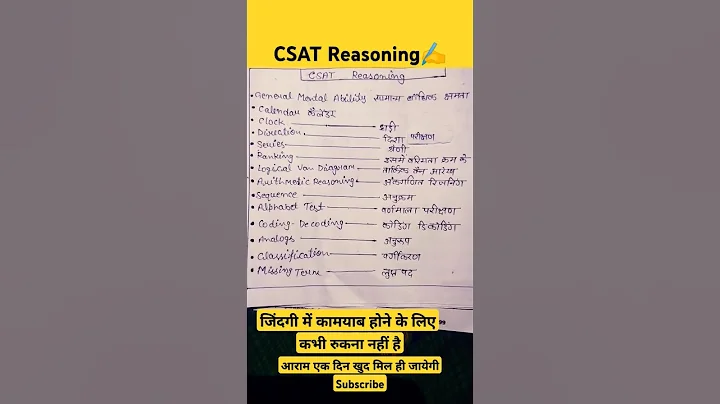 CSAT Reasoning✍️
CSAT Reasoning
• General Mental Ability सामान्य बौधिक क्षमता
• Calendar कैलेंडर
• Clock घड़ी
• Direction दिशा परीक्षण
• Series श्रेणी
• Ranking इसमें वरियता क्रम के
• Logical Van Diagram तार्किक वेन आरेख
• Arithmetic Reasoning अंकगणित रिजनिंग
• Sequence अनुक्रम
• Alphabet Test वर्णमाला परीक्षण
• Coding-Decoding कोडिंग डिकोडिंग
• Analogs अनुरूप
• Classification वर्गीकरण
• Missing Term लुप्त पद
जिंदगी में कामयाब होने के लिए
कभी रुकना नहीं है
आराम एक दिन खुद मिल ही जायेगी
Subscribe